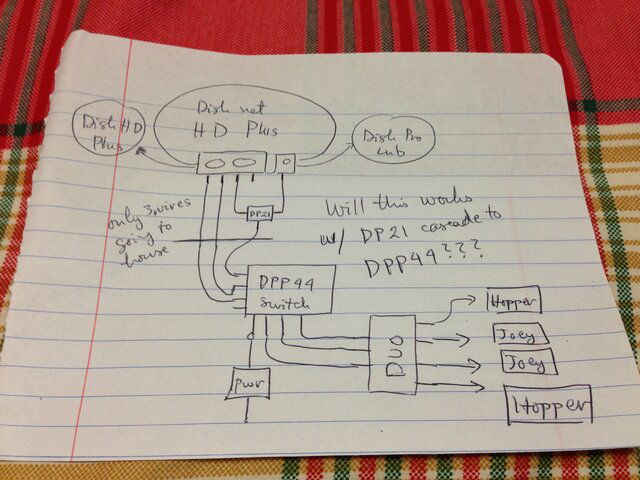 Dish net
HD Plus
Dish HD
Plus
Dish Pro
Lub
only 3 wires
going to
house
DP21
Will this works
w/ DP21 cascade to
DPP44???
DPP44
Switch
DUO
pwr
Hopper
Joey
Joey
Hopper